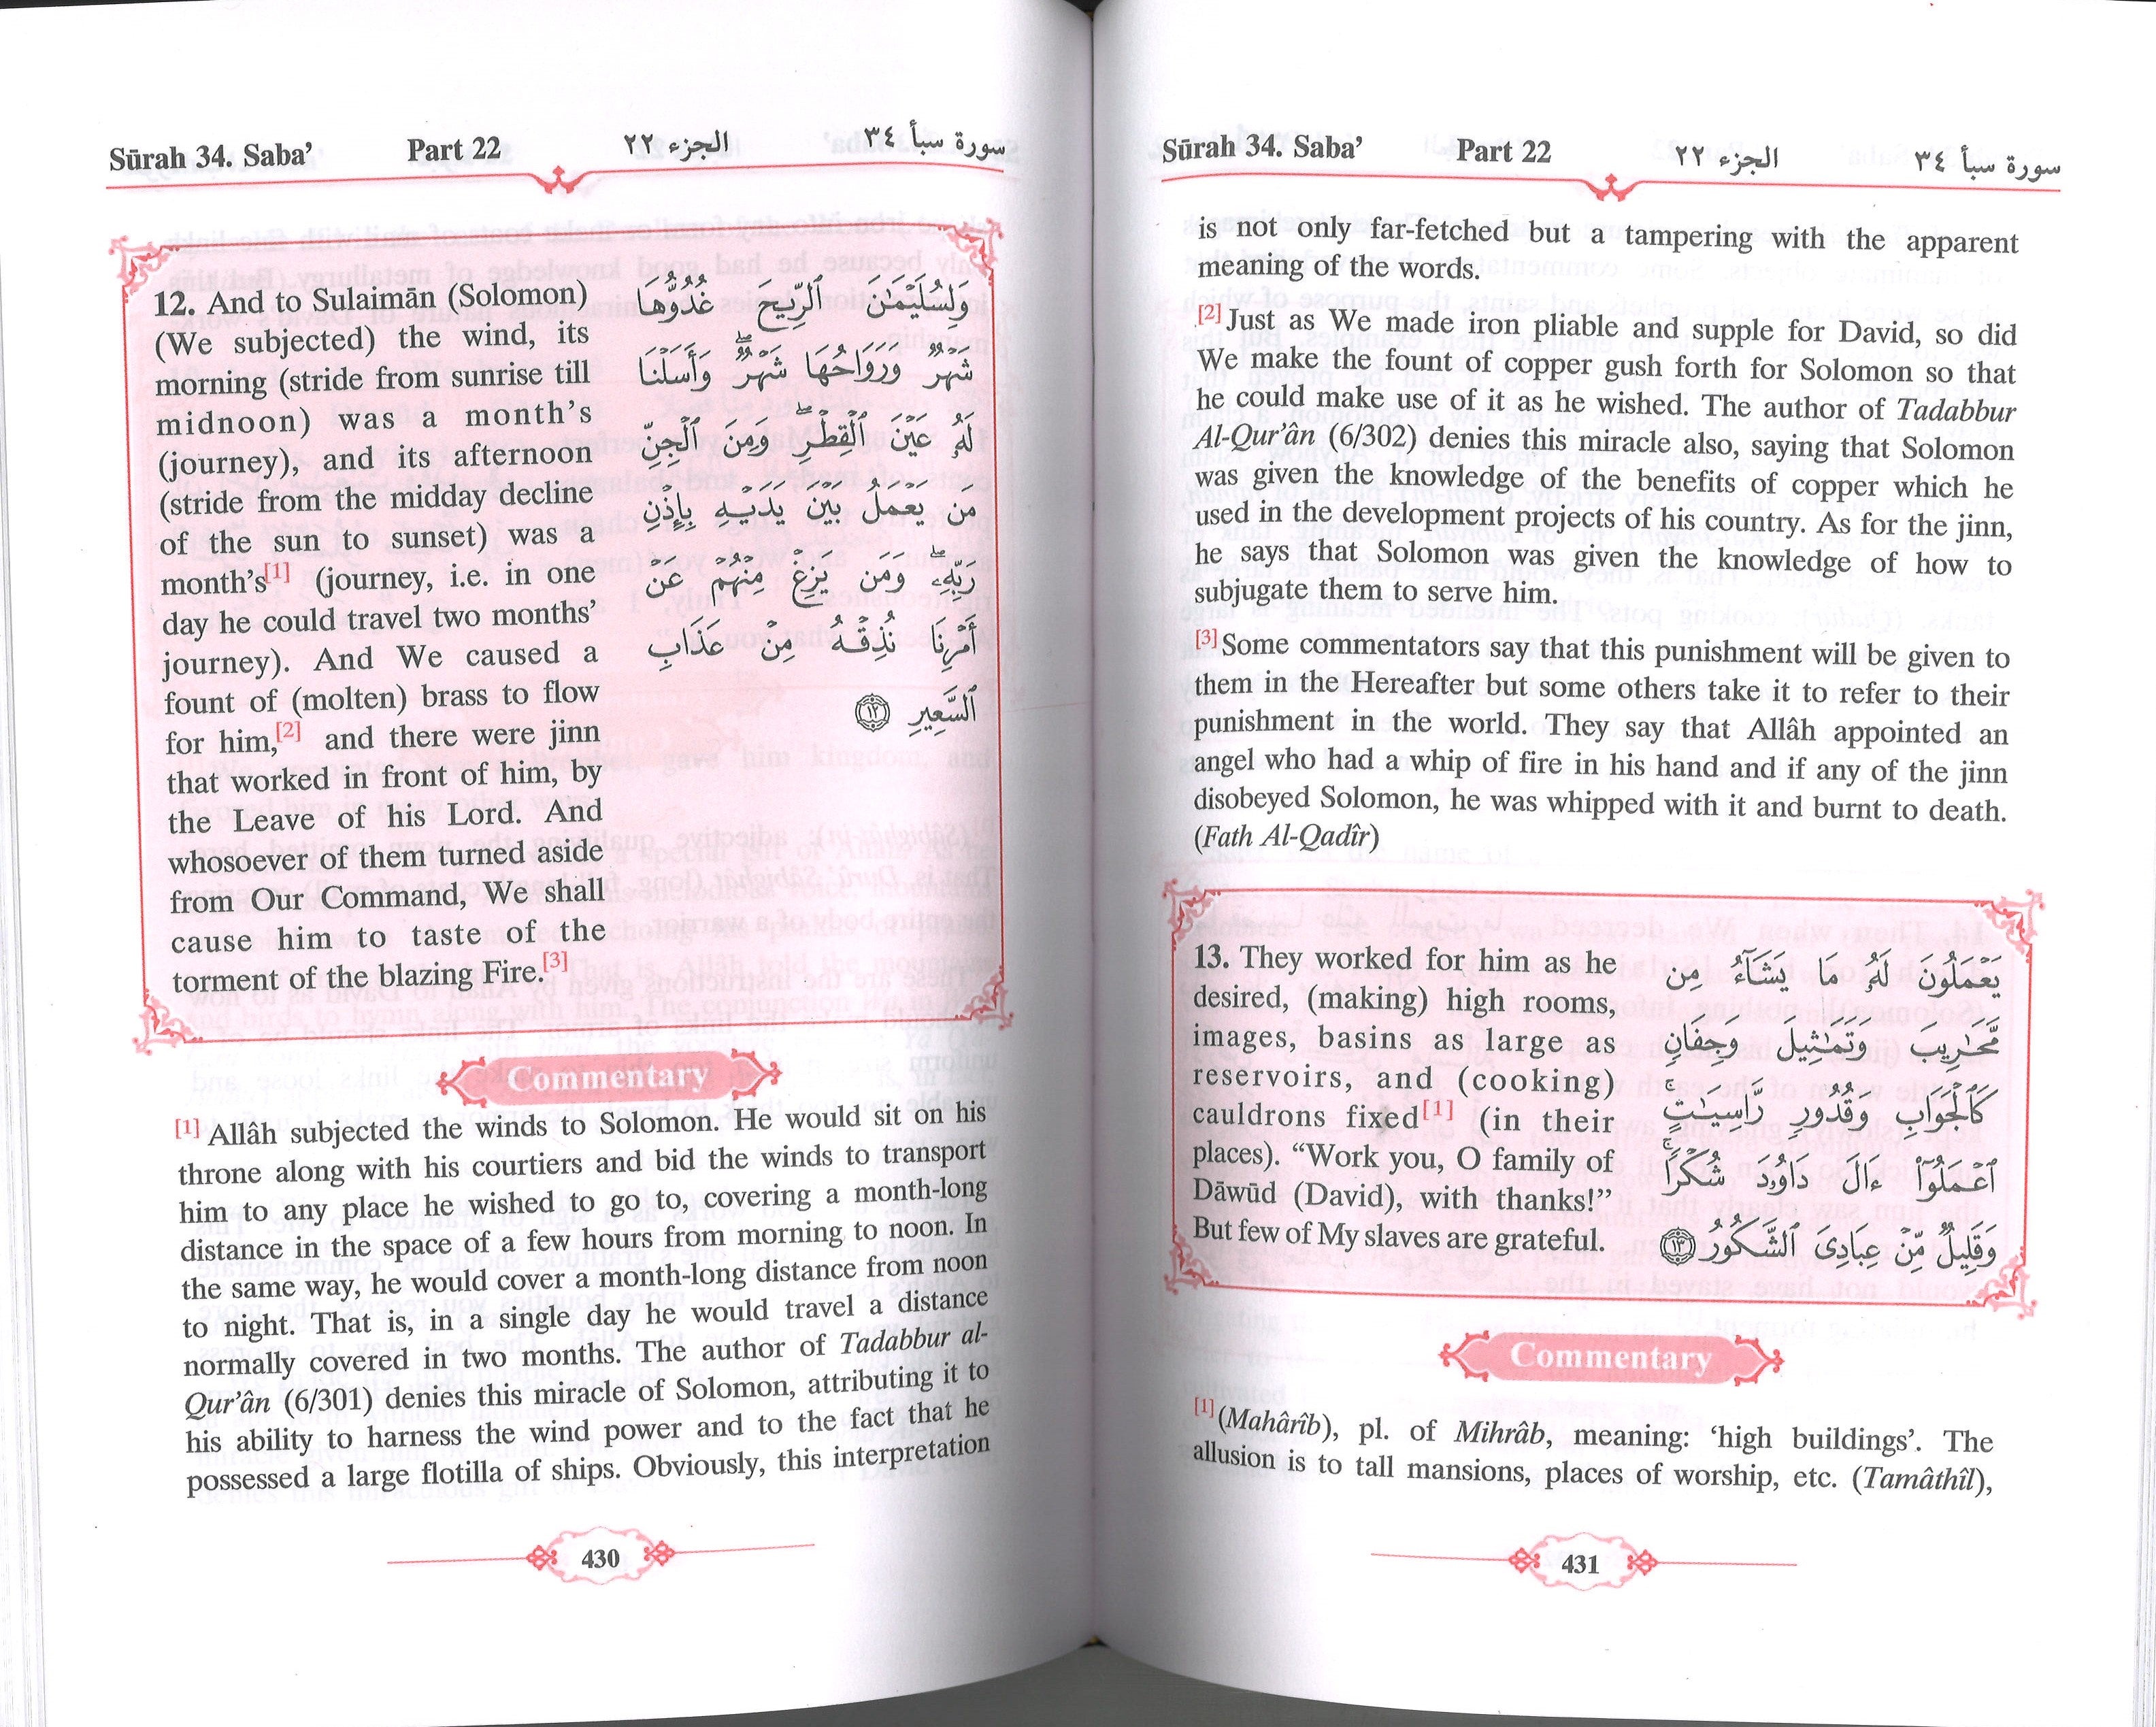 Sūrah 34. Saba’ Part 22 الجزء ٢٢ سورة سبأ ٣٤
12. And to Sulaimān (Solomon)
(We subjected) the wind, its
morning (stride from sunrise till
midnoon) was a month’s
(journey), and its afternoon
(stride from the midday decline
of the sun to sunset) was a
month’s[1] (journey, i.e. in one
day he could travel two months’
journey). And We caused a
fount of (molten) brass to flow
for him,[2] and there were jinn
that worked in front of him, by
the Leave of his Lord. And
whosoever of them turned aside
from Our Command, We shall
cause him to taste of the
torment of the blazing Fire.[3]
وَلِسُلَيْمَـٰنَ ٱلرِّيحَ غُدُوُّهَا
شَهْرٌ وَرَوَاحُهَا شَهْرٌ ۖ وَأَسَلْنَا
لَهُۥ عَيْنَ ٱلْقِطْرِ ۖ وَمِنَ ٱلْجِنِّ
مَن يَعْمَلُ بَيْنَ يَدَيْهِ بِإِذْنِ
رَبِّهِۦ ۖ وَمَن يَزِغْ مِنْهُمْ عَنْ
أَمْرِنَا نُذِقْهُ مِنْ عَذَابِ
ٱلسَّعِيرِ ١٢
Commentary
[1] Allâh subjected the winds to Solomon. He would sit on his
throne along with his courtiers and bid the winds to transport
him to any place he wished to go to, covering a month-long
distance in the space of a few hours from morning to noon. In
the same way, he would cover a month-long distance from noon
to night. That is, in a single day he would travel a distance
normally covered in two months. The author of Tadabbur al-
Qur’ân (6/301) denies this miracle of Solomon, attributing it to
his ability to harness the wind power and to the fact that he
possessed a large flotilla of ships. Obviously, this interpretation
430
Sūrah 34. Saba’ Part 22 الجزء ٢٢ سورة سبأ ٣٤
is not only far-fetched but a tampering with the apparent
meaning of the words.
[2] Just as We made iron pliable and supple for David, so did
We make the fount of copper gush forth for Solomon so that
he could make use of it as he wished. The author of Tadabbur
Al-Qur’ân (6/302) denies this miracle also, saying that Solomon
was given the knowledge of the benefits of copper which he
used in the development projects of his country. As for the jinn,
he says that Solomon was given the knowledge of how to
subjugate them to serve him.
[3] Some commentators say that this punishment will be given to
them in the Hereafter but some others take it to refer to their
punishment in the world. They say that Allâh appointed an
angel who had a whip of fire in his hand and if any of the jinn
disobeyed Solomon, he was whipped with it and burnt to death.
(Fath Al-Qadîr)
13. They worked for him as he
desired, (making) high rooms,
images, basins as large as
reservoirs, and (cooking)
cauldrons fixed[1] (in their
places). “Work you, O family of
Dāwūd (David), with thanks!”
But few of My slaves are grateful.
يَعْمَلُونَ لَهُۥ مَا يَشَآءُ مِن
مَّحَـٰرِيبَ وَتَمَـٰثِيلَ وَجِفَانٍ
كَٱلْجَوَابِ وَقُدُورٍ رَّاسِيَـٰتٍ ۚ
ٱعْمَلُوٓا۟ ءَالَ دَاوُۥدَ شُكْرًا ۚ
وَقَلِيلٌ مِّنْ عِبَادِىَ ٱلشَّكُورُ ١٣
Commentary
[1] (Mahârîb), pl. of Mihrâb, meaning: ‘high buildings’. The
allusion is to tall mansions, places of worship, etc. (Tamâthîl),
431